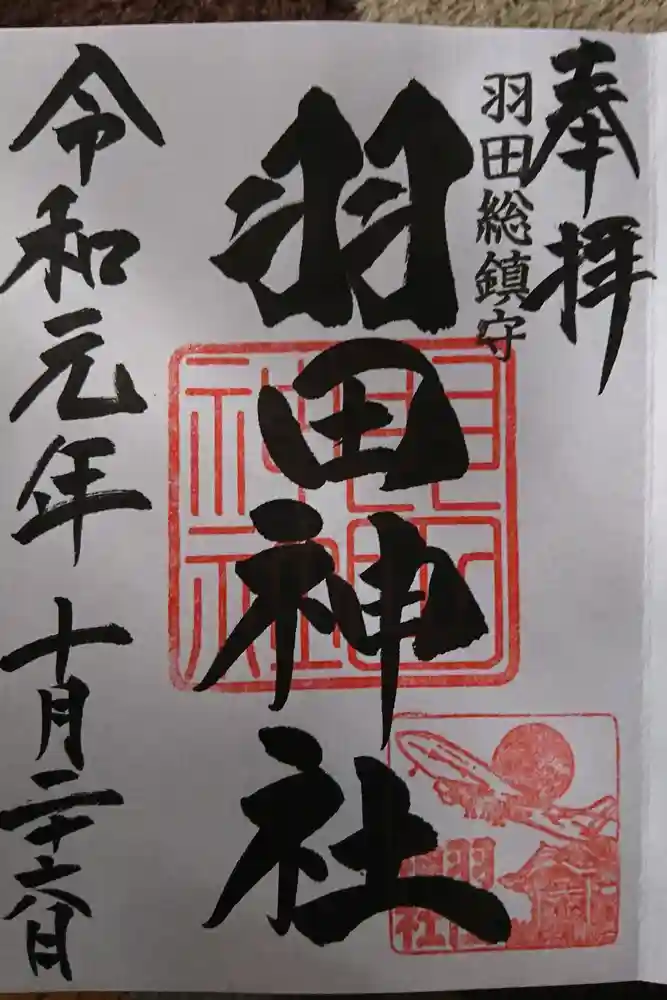 奉拝
羽田総鎮守
羽田神社
令和元年十月二十六日
羽田
神社
羽田
神社